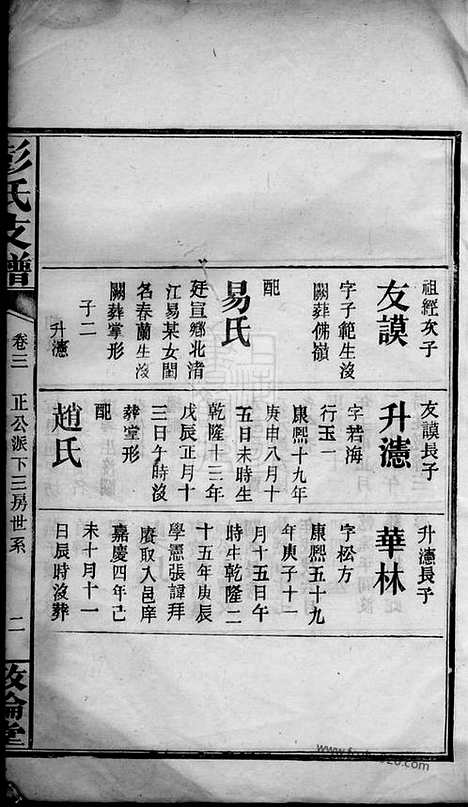 祖經次子
友謨
字子範生沒
闕葬佛嶺
配
易氏
廷宣鄉北清
江易某女閨
名春蘭生沒
闕葬掌形
子二
升瀗
友謨長子
升瀗
字若海
行玉一
康熙十九年
庚申八月十
五日未時生
乾隆十三年
戊辰正月十
三日午時沒
葬堂形
配
趙氏
升瀗長子
華林
字松方
康熙五十九
年庚子十一
月十五日午
時生乾隆二
十五年庚辰
學憲張諱拜
賡取入邑庠
嘉慶四年己
未十月十一
日辰時沒葬
彭氏支譜
卷三
正公派下三房世系
二
敦倫堂